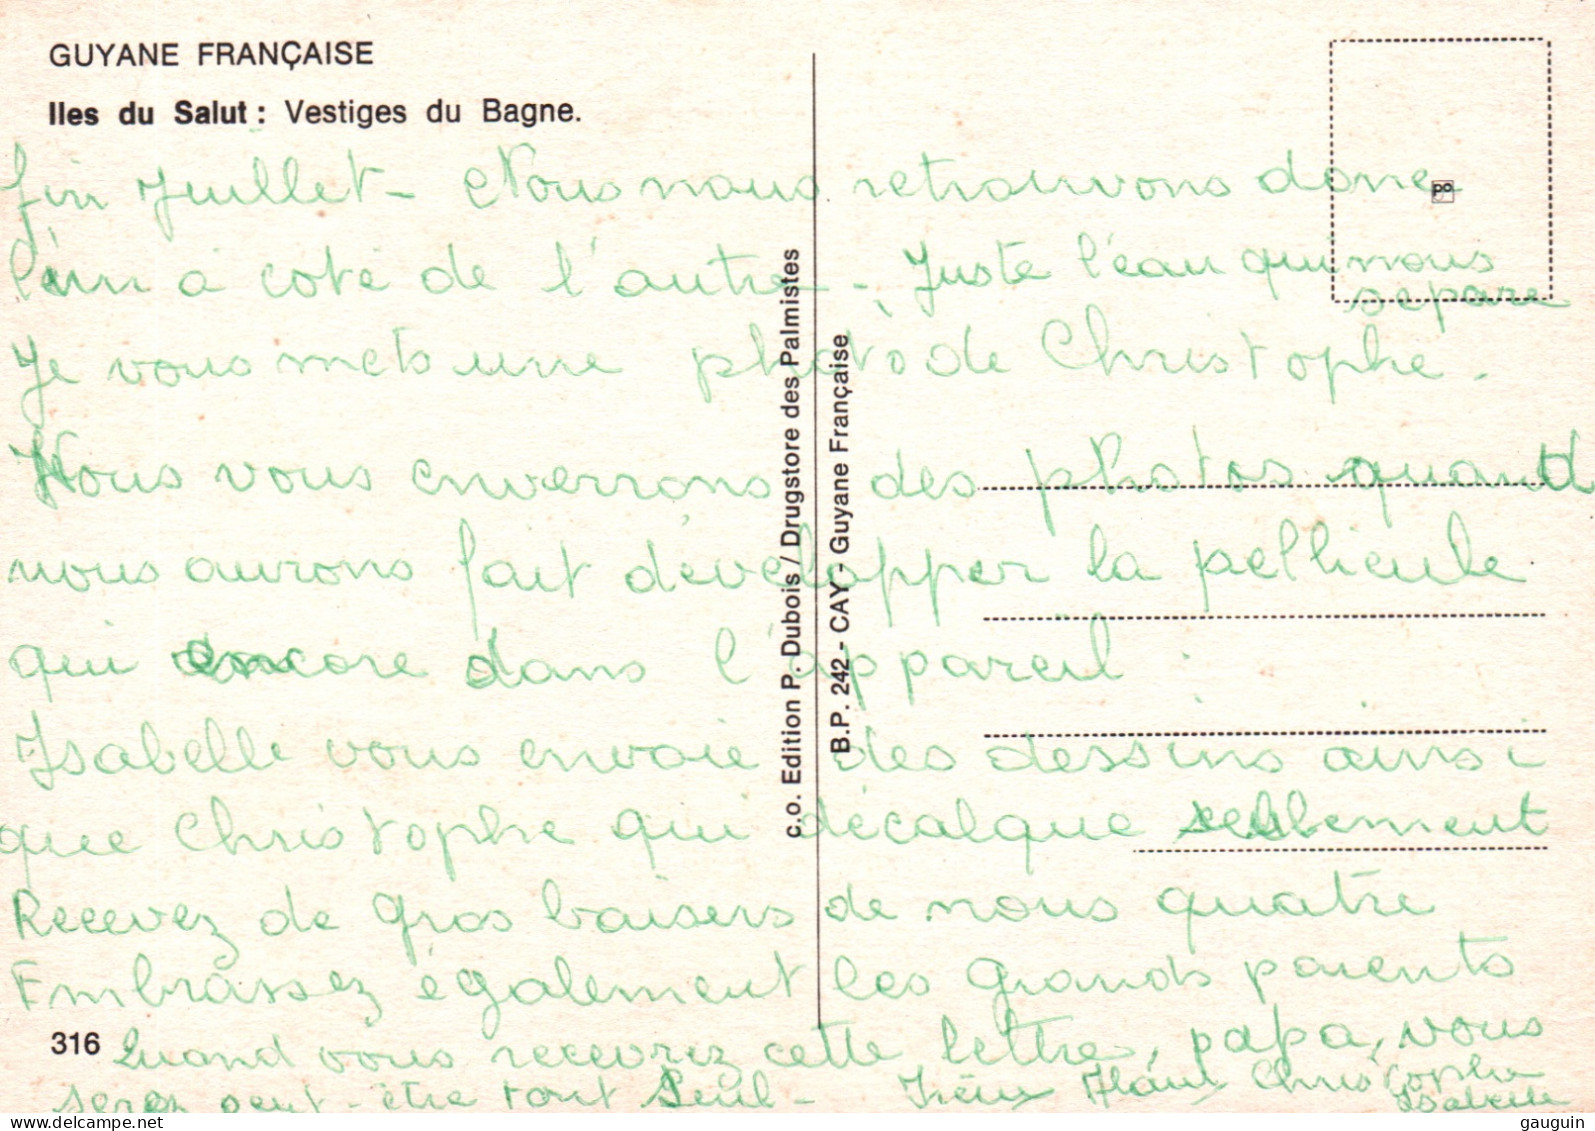 GUYANE FRANÇAISE
Iles du Salut : Vestiges du Bagne.
fin Juillet - Nous nous retrouvons donc
l'un à coté de l'autre - Juste l'eau qui nous
separe
Je vous mets une photo de Christophe.
Nous vous enverrons des photos quand
nous aurons fait développer la pellicule
qui encore dans l'appareil.
Isabelle vous envoie des dessins ainsi
que Christophe qui décalque seulement
Recevez de gros baisers de nous quatre
Embrassez également les Grands parents
316
Quand vous recevrez cette lettre, papa, vous
serez peut-être tout seul -
Christophe
Isabelle
c.o. Edition P. Dubois / Drugstore des Palmistes
B.P. 242 - CAY - Guyane Française
po
www.delcampe.net
gauguin